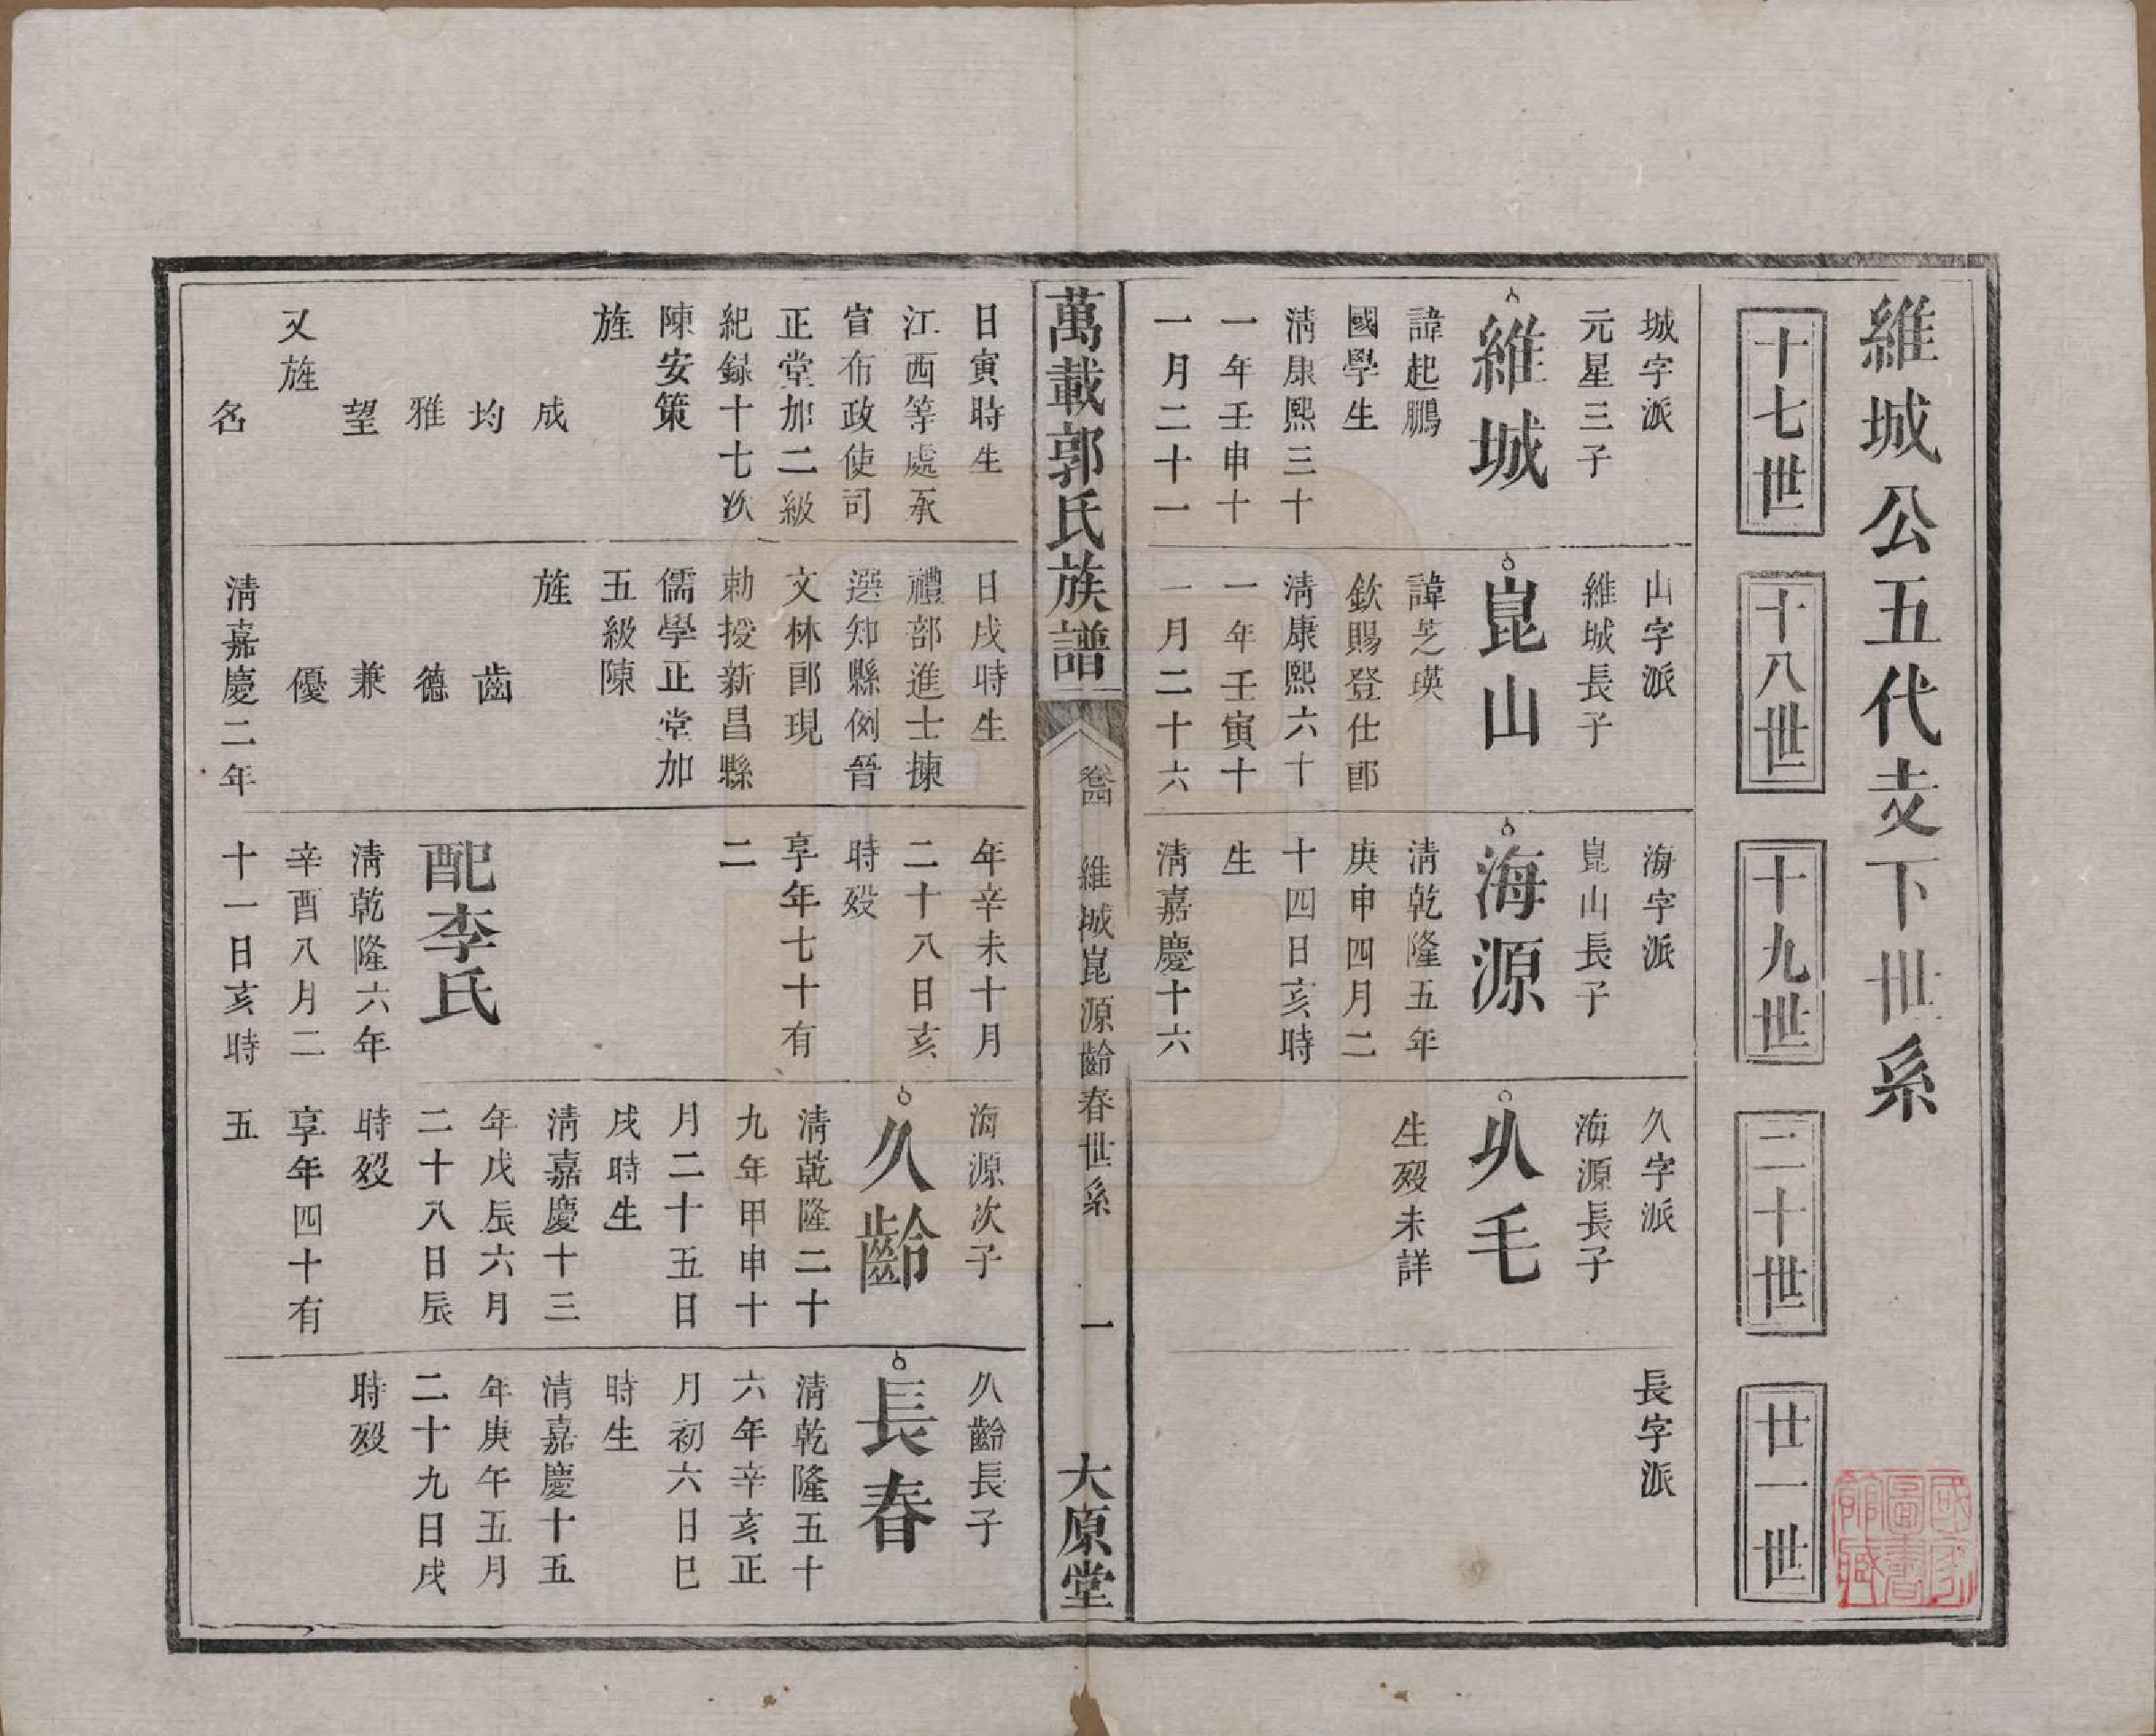 維城公五代支下世系
十七世
十八世
十九世
二十世
廿一世
城字派
元星三子
維城
諱起鵬
國學生
淸康熙三十
一年壬申十
一月二十一
山字派
維城長子
崑山
諱芝瑛
欽賜登仕郎
淸康熙六十
一年壬寅十
一月二十六
海字派
崑山長子
海源
淸乾隆五年
庚申四月二
十四日亥時
生
淸嘉慶十六
久字派
海源長子
久毛
生歿未詳
長字派
萬載郭氏族譜
卷四
維城崑源齡春世系
一
大原堂
日寅時生
江西等處承
宣布政使司
正堂加二級
紀録十七次
陳安策
旌
成
均
雅
望
又旌
名
日戌時生
禮部進士揀
選知縣例晉
文林郎現
勅授新昌縣
儒學正堂加
五級陳
旌
齒
德
兼
優
淸嘉慶二年
年辛未十月
二十八日亥
時歿
享年七十有
二
配李氏
淸乾隆六年
辛酉八月二
十一日亥時
海源次子
久齡
淸乾隆二十
九年甲申十
月二十五日
戌時生
淸嘉慶十三
年戊辰六月
二十八日辰
時歿
享年四十有
五
久齡長子
長春
淸乾隆五十
六年辛亥正
月初六日巳
時生
淸嘉慶十五
年庚午五月
二十九日戌
時歿
國家
圖書
館藏